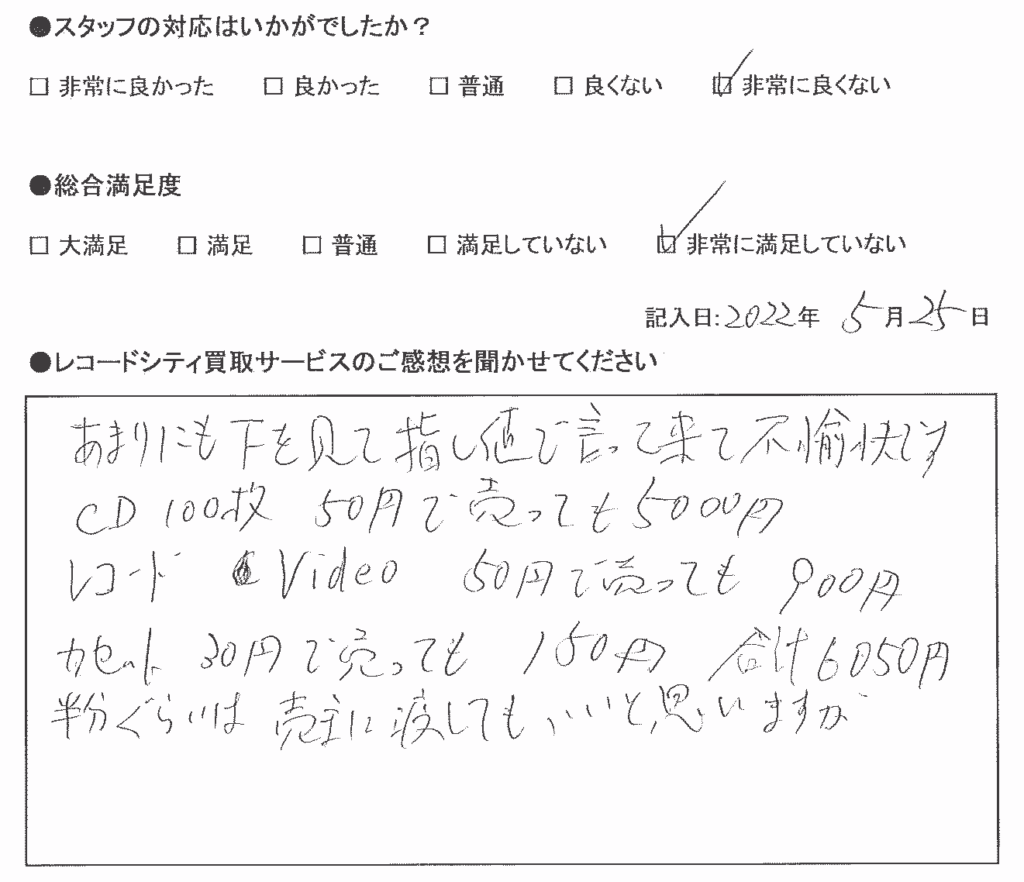 ●スタッフの対応はいかがでしたか？
□ 非常に良かった □ 良かった □ 普通 □ 良くない ☑ 非常に良くない
●総合満足度
□ 大満足 □ 満足 □ 普通 □ 満足していない ☑ 非常に満足していない
記入日:2022年 5月25日
●レコードシティ買取サービスのご感想を聞かせてください
あまりにも下を見て指し値で言って来て不愉快です
CD 100枚 50円で売っても5000円
レコード Video 50円で売っても 900円
カセット 30円で売っても 150円 合計6050円
半分ぐらいは売主に渡してもいいと思いますが